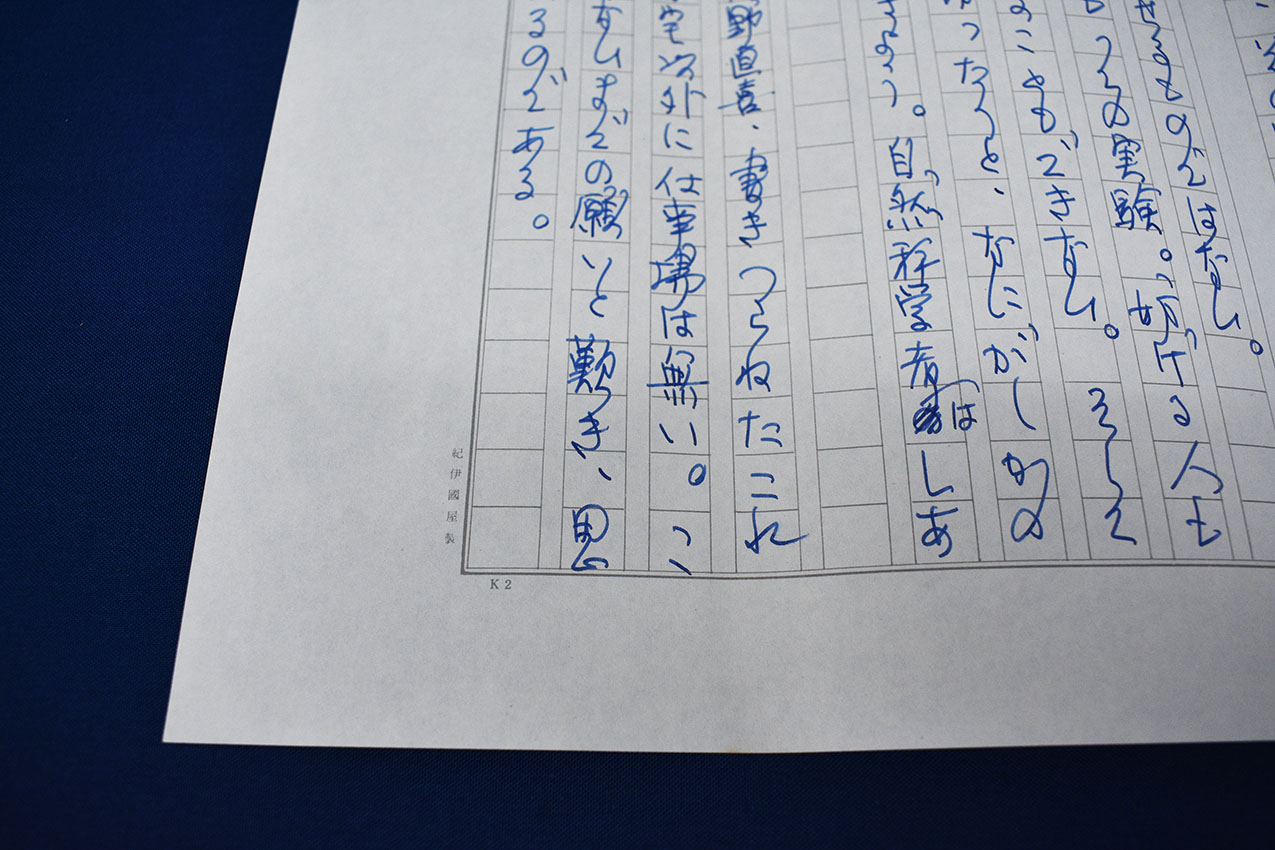 せるものではない。
つの実験。妨げる人も
なこともできない。そして
かったろと、なにがしかの
きるよう。自然科学者はしあ
野直喜・書きつらねたこれ
宅以外に仕事場は無い。こ
ないまでの願いと歎き、思
るのである。
紀伊國屋製
K2